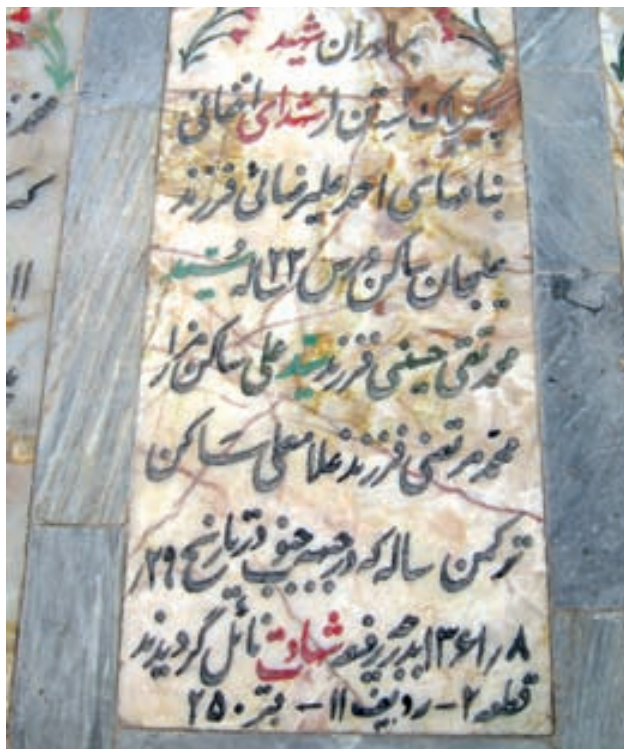 برادران شهید
پیکر پاک سه تن از شهدای افغانی
بنامهای احمد علیرضائی فرزند
ساکن ۲۲ ساله سید
محمد تقی حسینی فرزند سید علی ساکن مزار
محمد مرتضی فرزند غلامعلی ساکن
ترکمن ساله که در جبهه جنوب در تاریخ ۲۹/
۸/۱۳۶۱ بدرجه رفیعه شهادت نائل گردیدند
قطعه ۲- ردیف ۱۱- قبر ۲۵۰